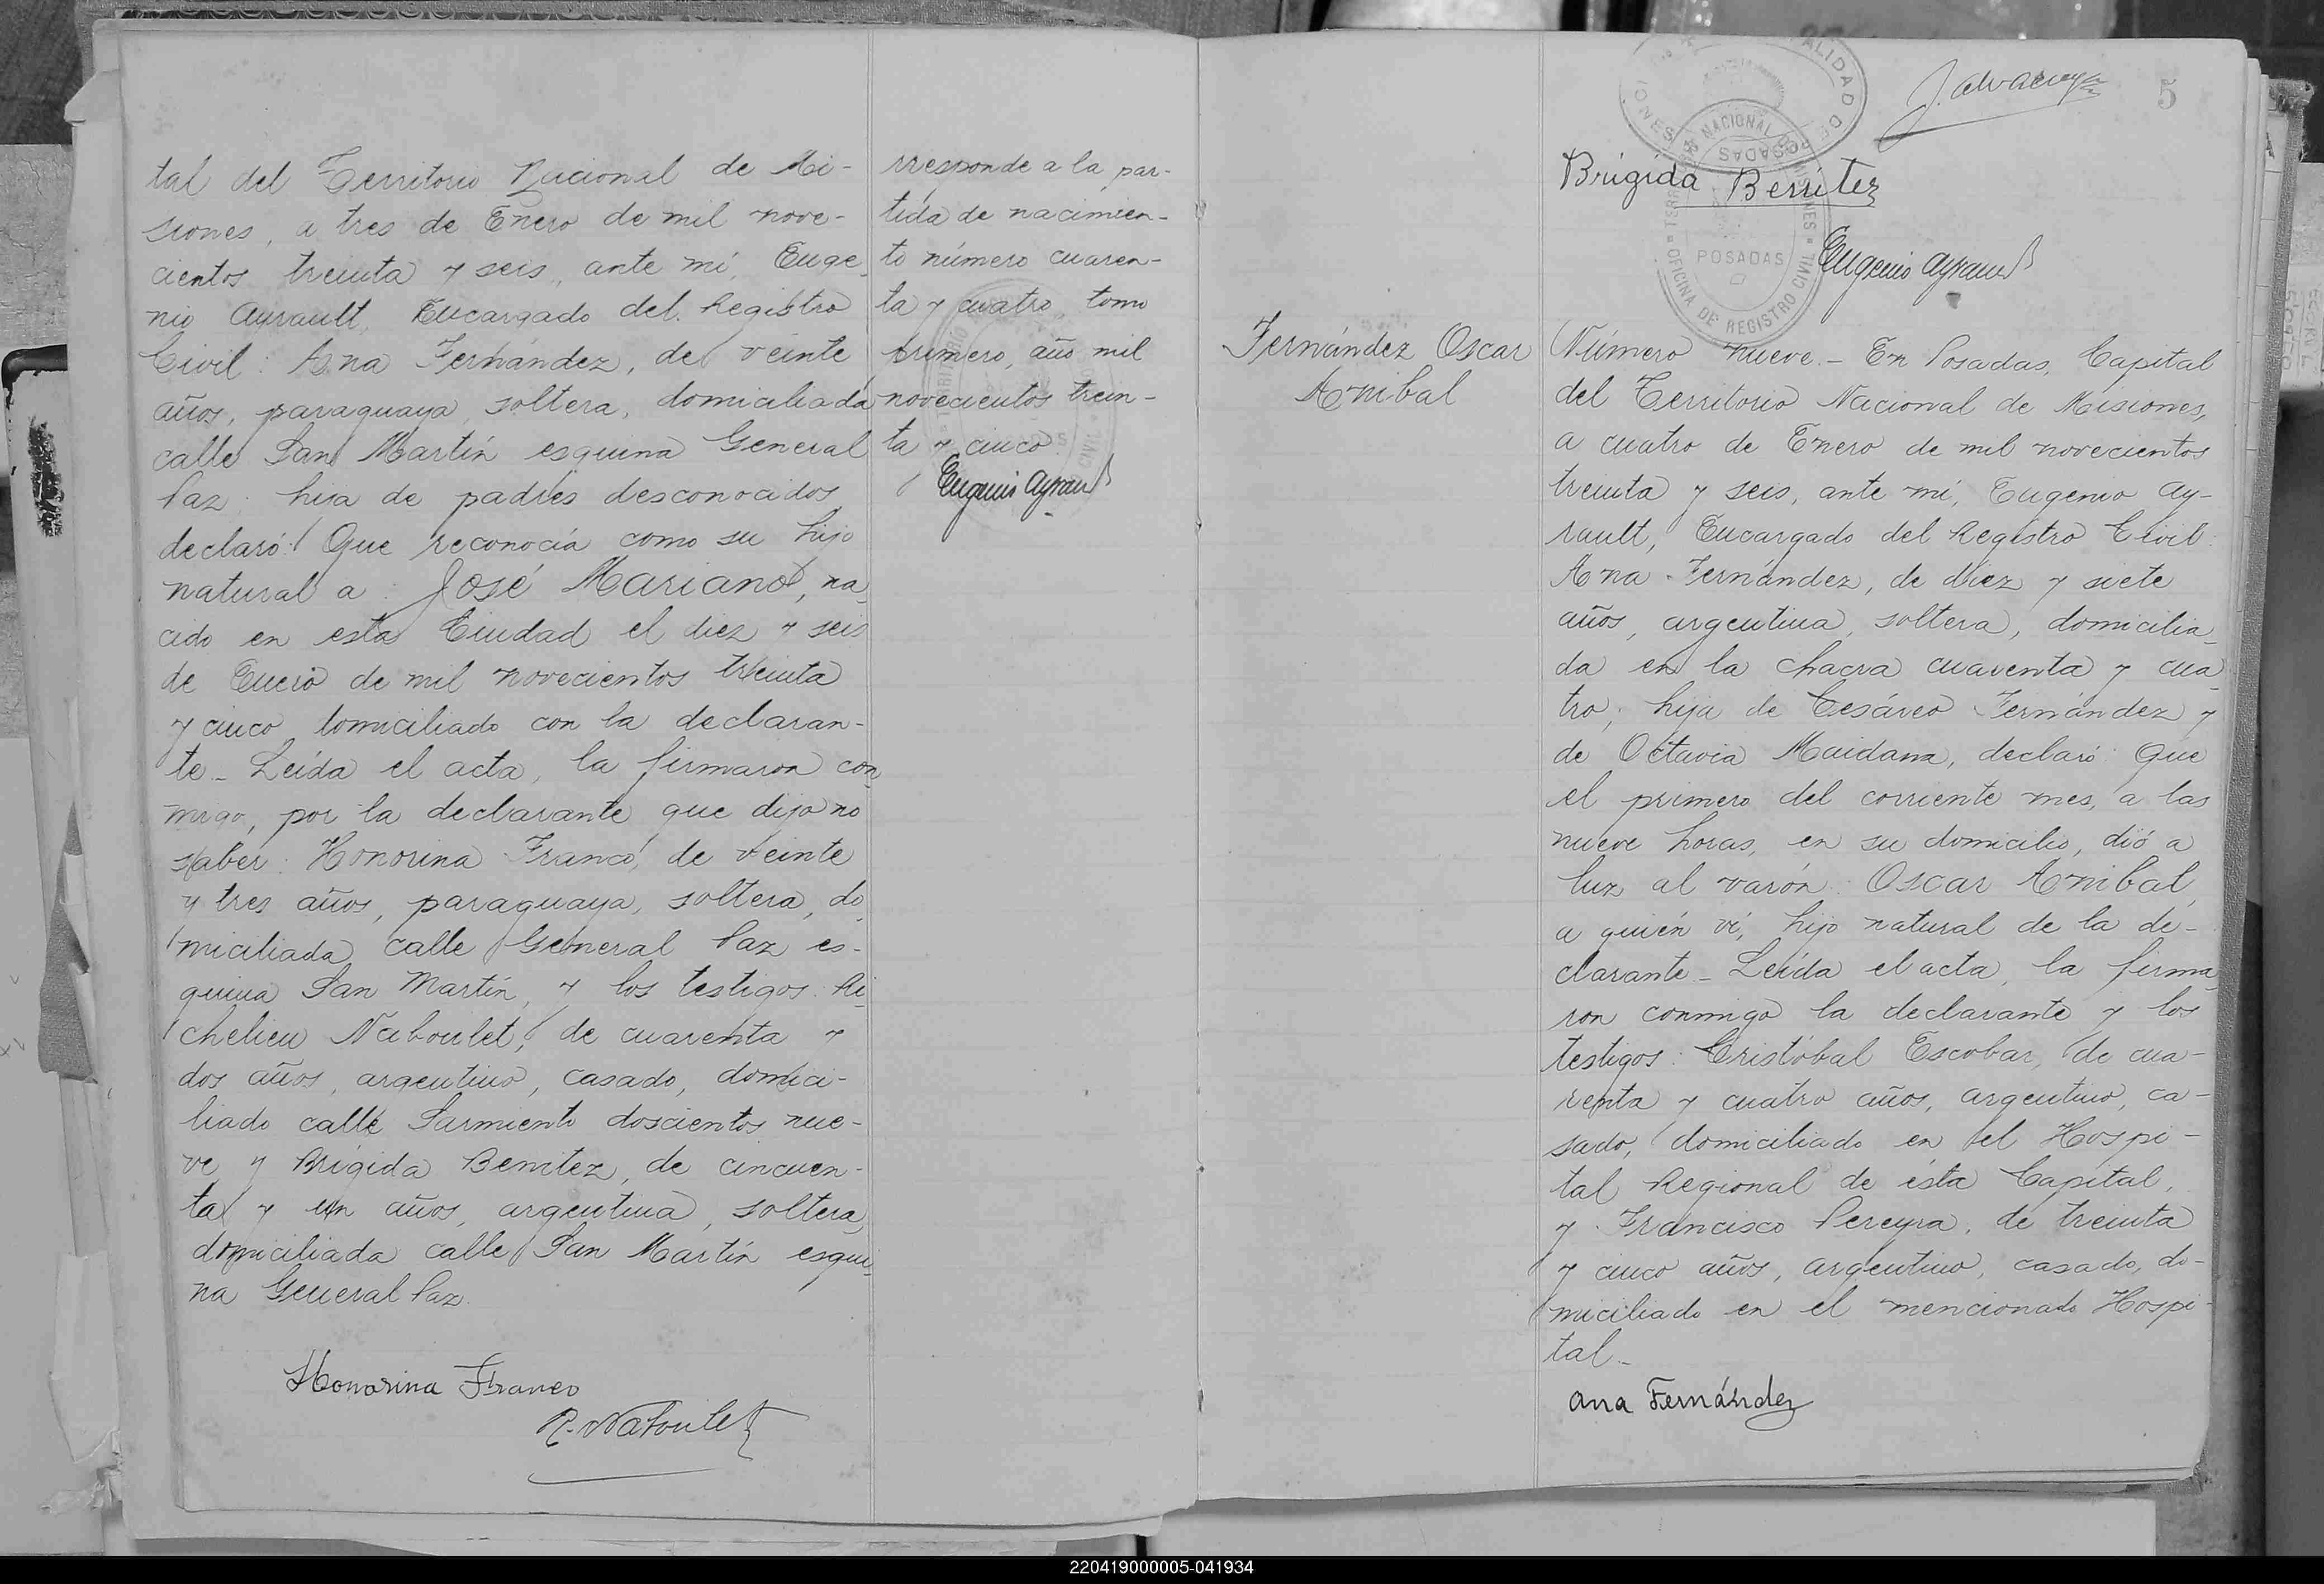 tal del Territorio Nacional de Mi-
siones, a tres de Enero de mil nove-
cientos treinta y seis, ante mí, Euge
nio Ayrault, Encargado del Registro
Civil: Ana Fernández, de veinte
años, paraguaya, soltera, domiciliada
calle San Martín esquina General
Paz; hija de padres desconocidos,
declaró: Que reconocía como su hijo
natural a: José Mariano, na
cido en esta Ciudad el diez y seis
de Enero de mil novecientos treinta
y cinco domiciliado con la declaran-
te.- Leída el acta, la firmaron con
migo, por la declarante que dijo no
saber: Honorina Franco, de veinte
y tres años, paraguaya, soltera, do
miciliada calle General Paz es-
quina San Martín, y los testigos: Ri
chelieu Naboulet, de cuarenta y
dos años, argentino, casado, domici-
liado calle Sarmiento doscientos nue-
ve y Brígida Benítez, de cincuen-
ta y un años, argentina, soltera,
domiciliada calle San Martín esqui
na General Paz.
Honorina Franco
R. Naboulet
rresponde a la par-
tida de nacimien-
to número cuaren-
ta y cuatro, tomo
primero, año mil
novecientos trein-
ta y cinco.
Eugenio Ayrault
5
Brigida Benitez
POSADAS
OFICINA DE REGISTRO CIVIL
Eugenio Ayrault
Fernández Oscar
Anibal
Número nueve.- En Posadas, Capital
del Territorio Nacional de Misiones,
a cuatro de Enero de mil novecientos
treinta y seis, ante mí, Eugenio Ay-
rault, Encargado del Registro Civil:
Ana Fernández, de diez y siete
años, argentina, soltera, domicilia
da en la chacra cuarenta y cua
tro; hija de Cesáreo Fernández y
de Octavia Maidana, declaró: Que
el primero del corriente mes, a las
nueve horas, en su domicilio, dió a
luz al varón: Oscar Anibal,
a quién ví, hijo natural de la de-
clarante.- Leída el acta, la firma
ron conmigo la declarante y los
testigos: Cristóbal Escobar, de cua-
renta y cuatro años, argentino, ca-
sado, domiciliado en el Hospi-
tal Regional de ésta Capital,
y Francisco Pereyra, de treinta
y cinco años, argentino, casado, do-
miciliado en el mencionado Hospi-
tal.-
Ana Fernández
220419000005-041934